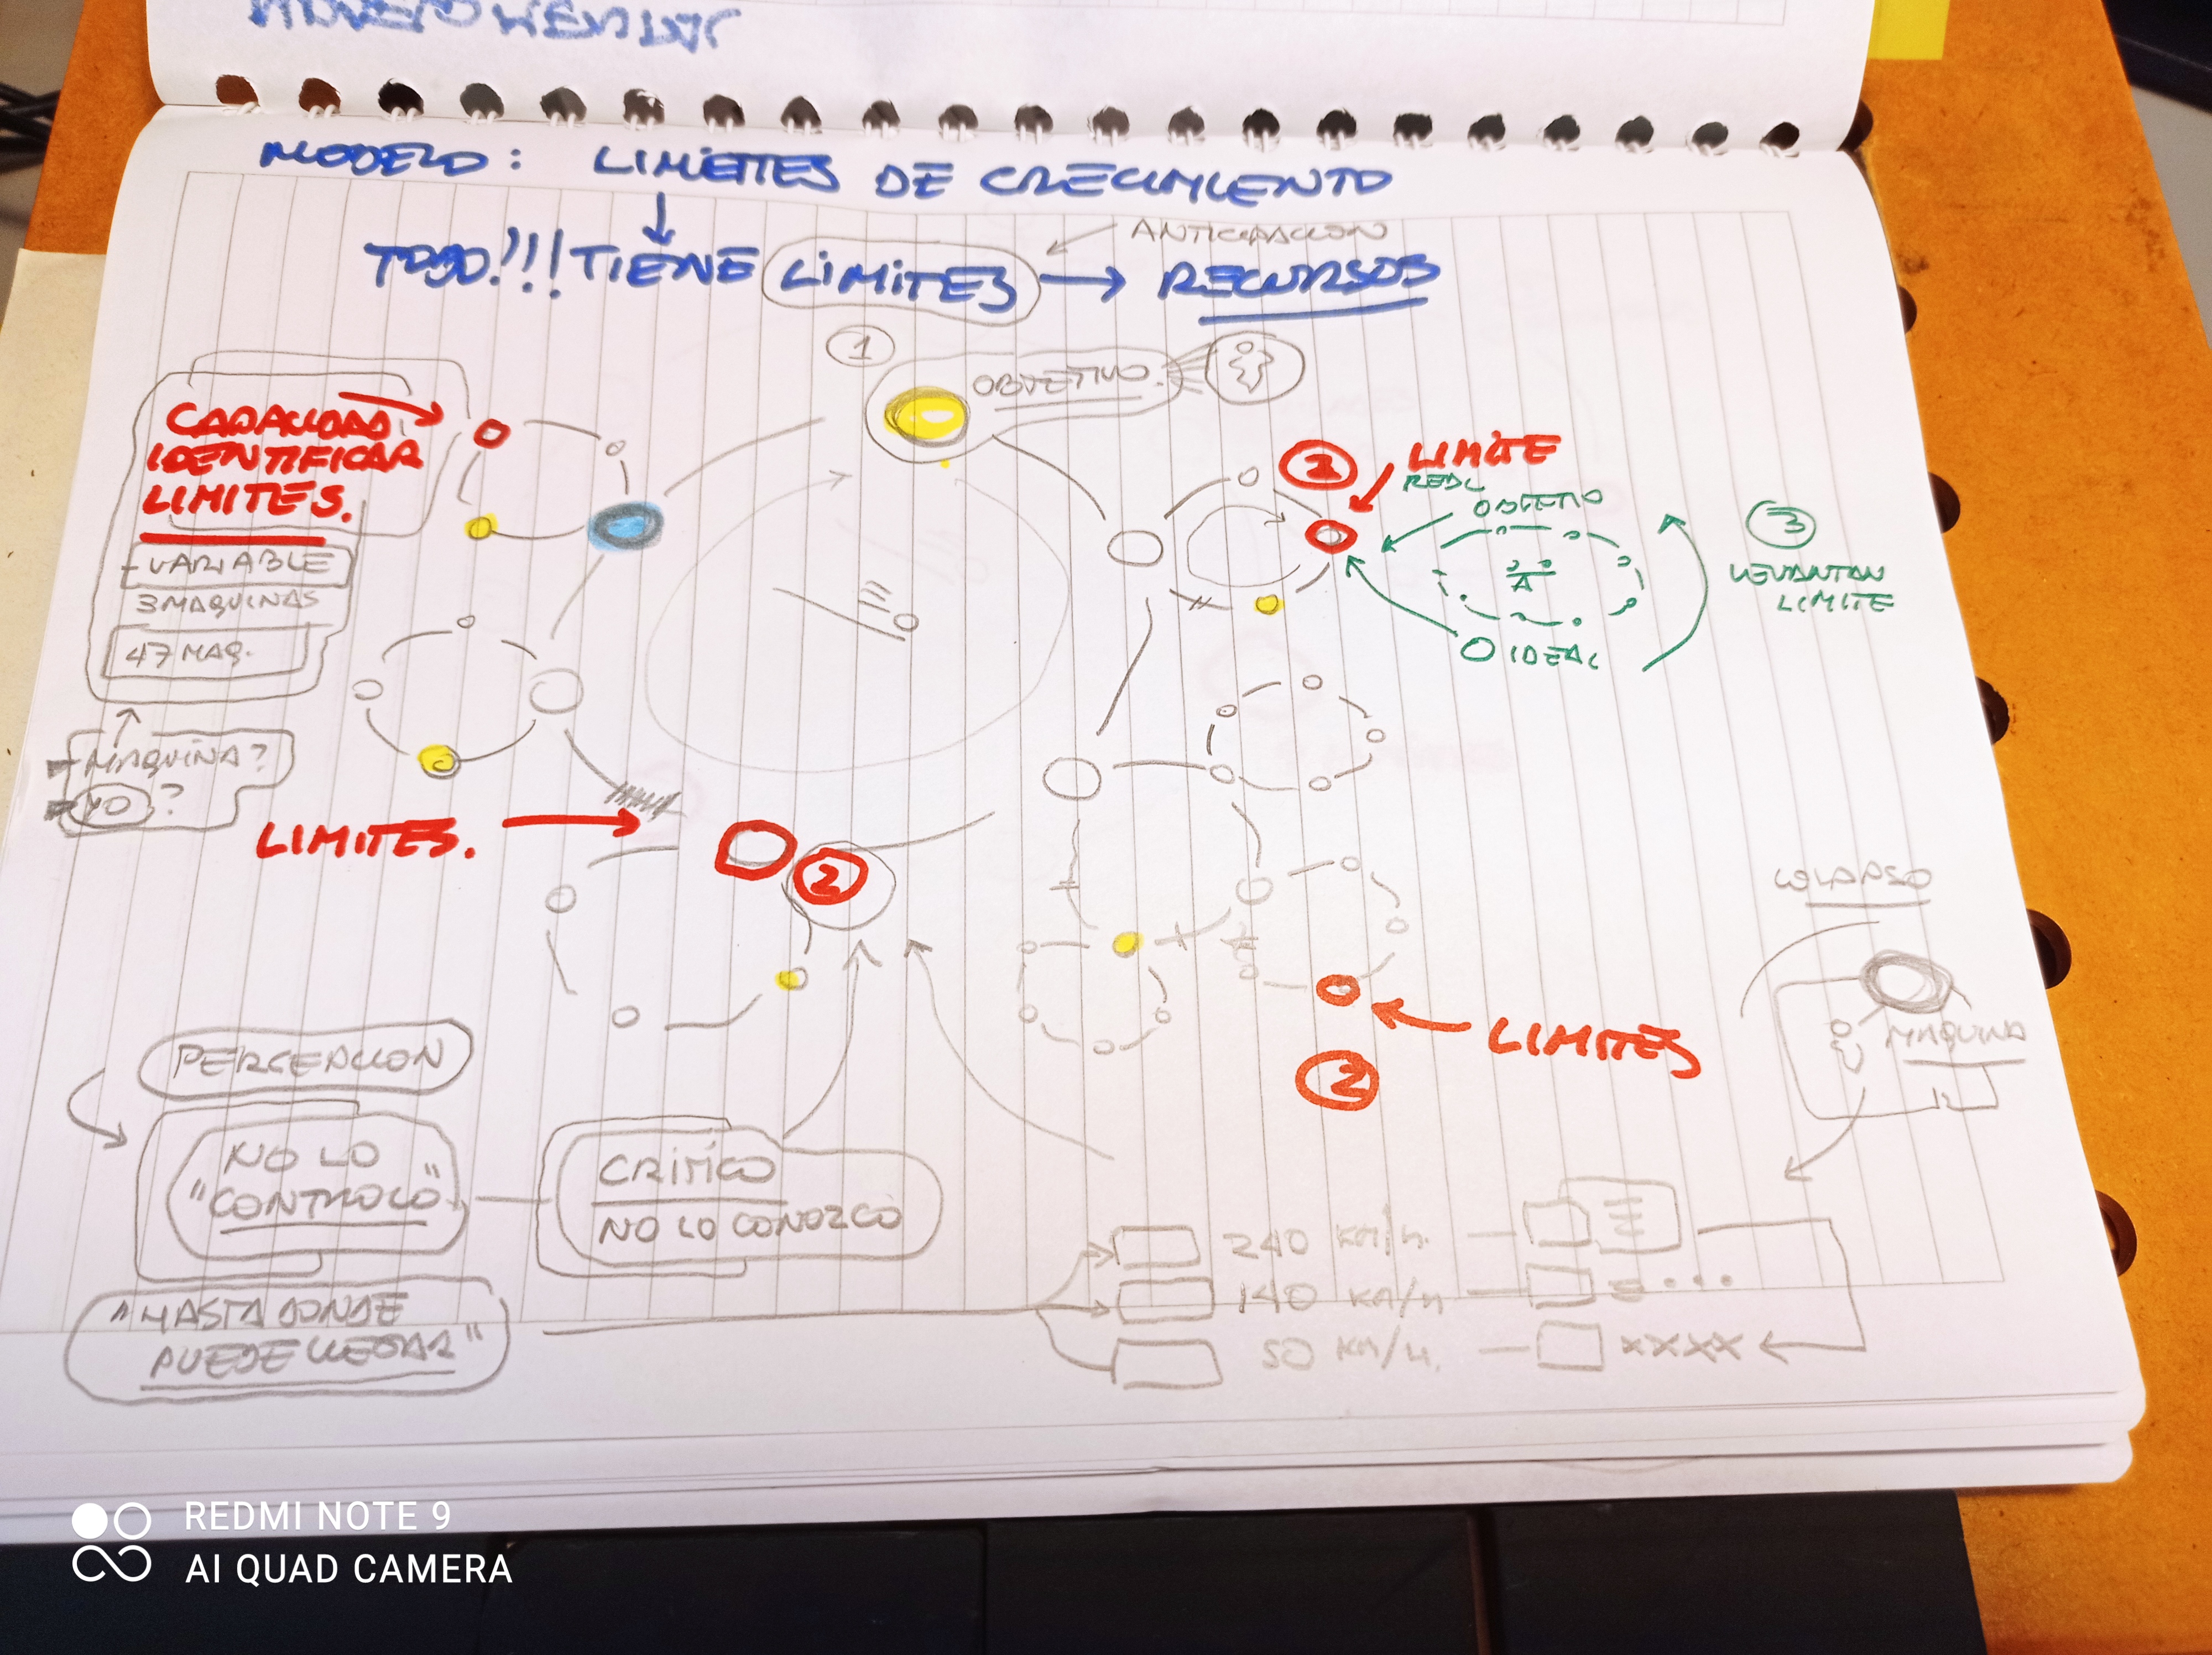 MODELO: LIMIETTES DE CRECIMIENTO
ANTICIPACION
TODO!!! TIENE LIMITES → RECURSOS
1
OBJETIVO.
CAPACIDAD
IDENTIFICAR
LIMITES.
- VARIABLE
3 MAQUINAS
47 MAQ.
- MAQUINA?
- YO?
2
LIMITE
REAL
OBJETIO
IDEAL
3
LEVANTAN
LIMITE
LIMITES.
2
COLAPSO
MAQUINA
LIMITES
2
PERCEPCION
NO LO
"CONTROLO"
CRITICO
NO LO CONOZCO
"HASTA DONDE
PUEDE LLEGAR"
240 KM/h.
140 KM/h
50 KM/h. XXXX
REDMI NOTE 9
AI QUAD CAMERA